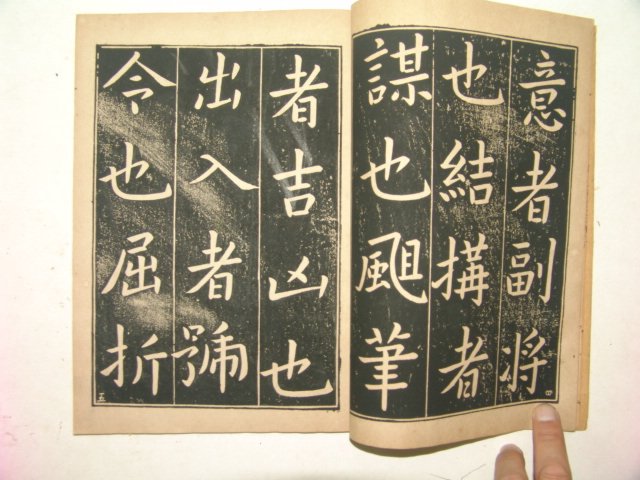 意者副將
也結搆者
謀也筆
者吉凶也
出入者號
令也屈折
五